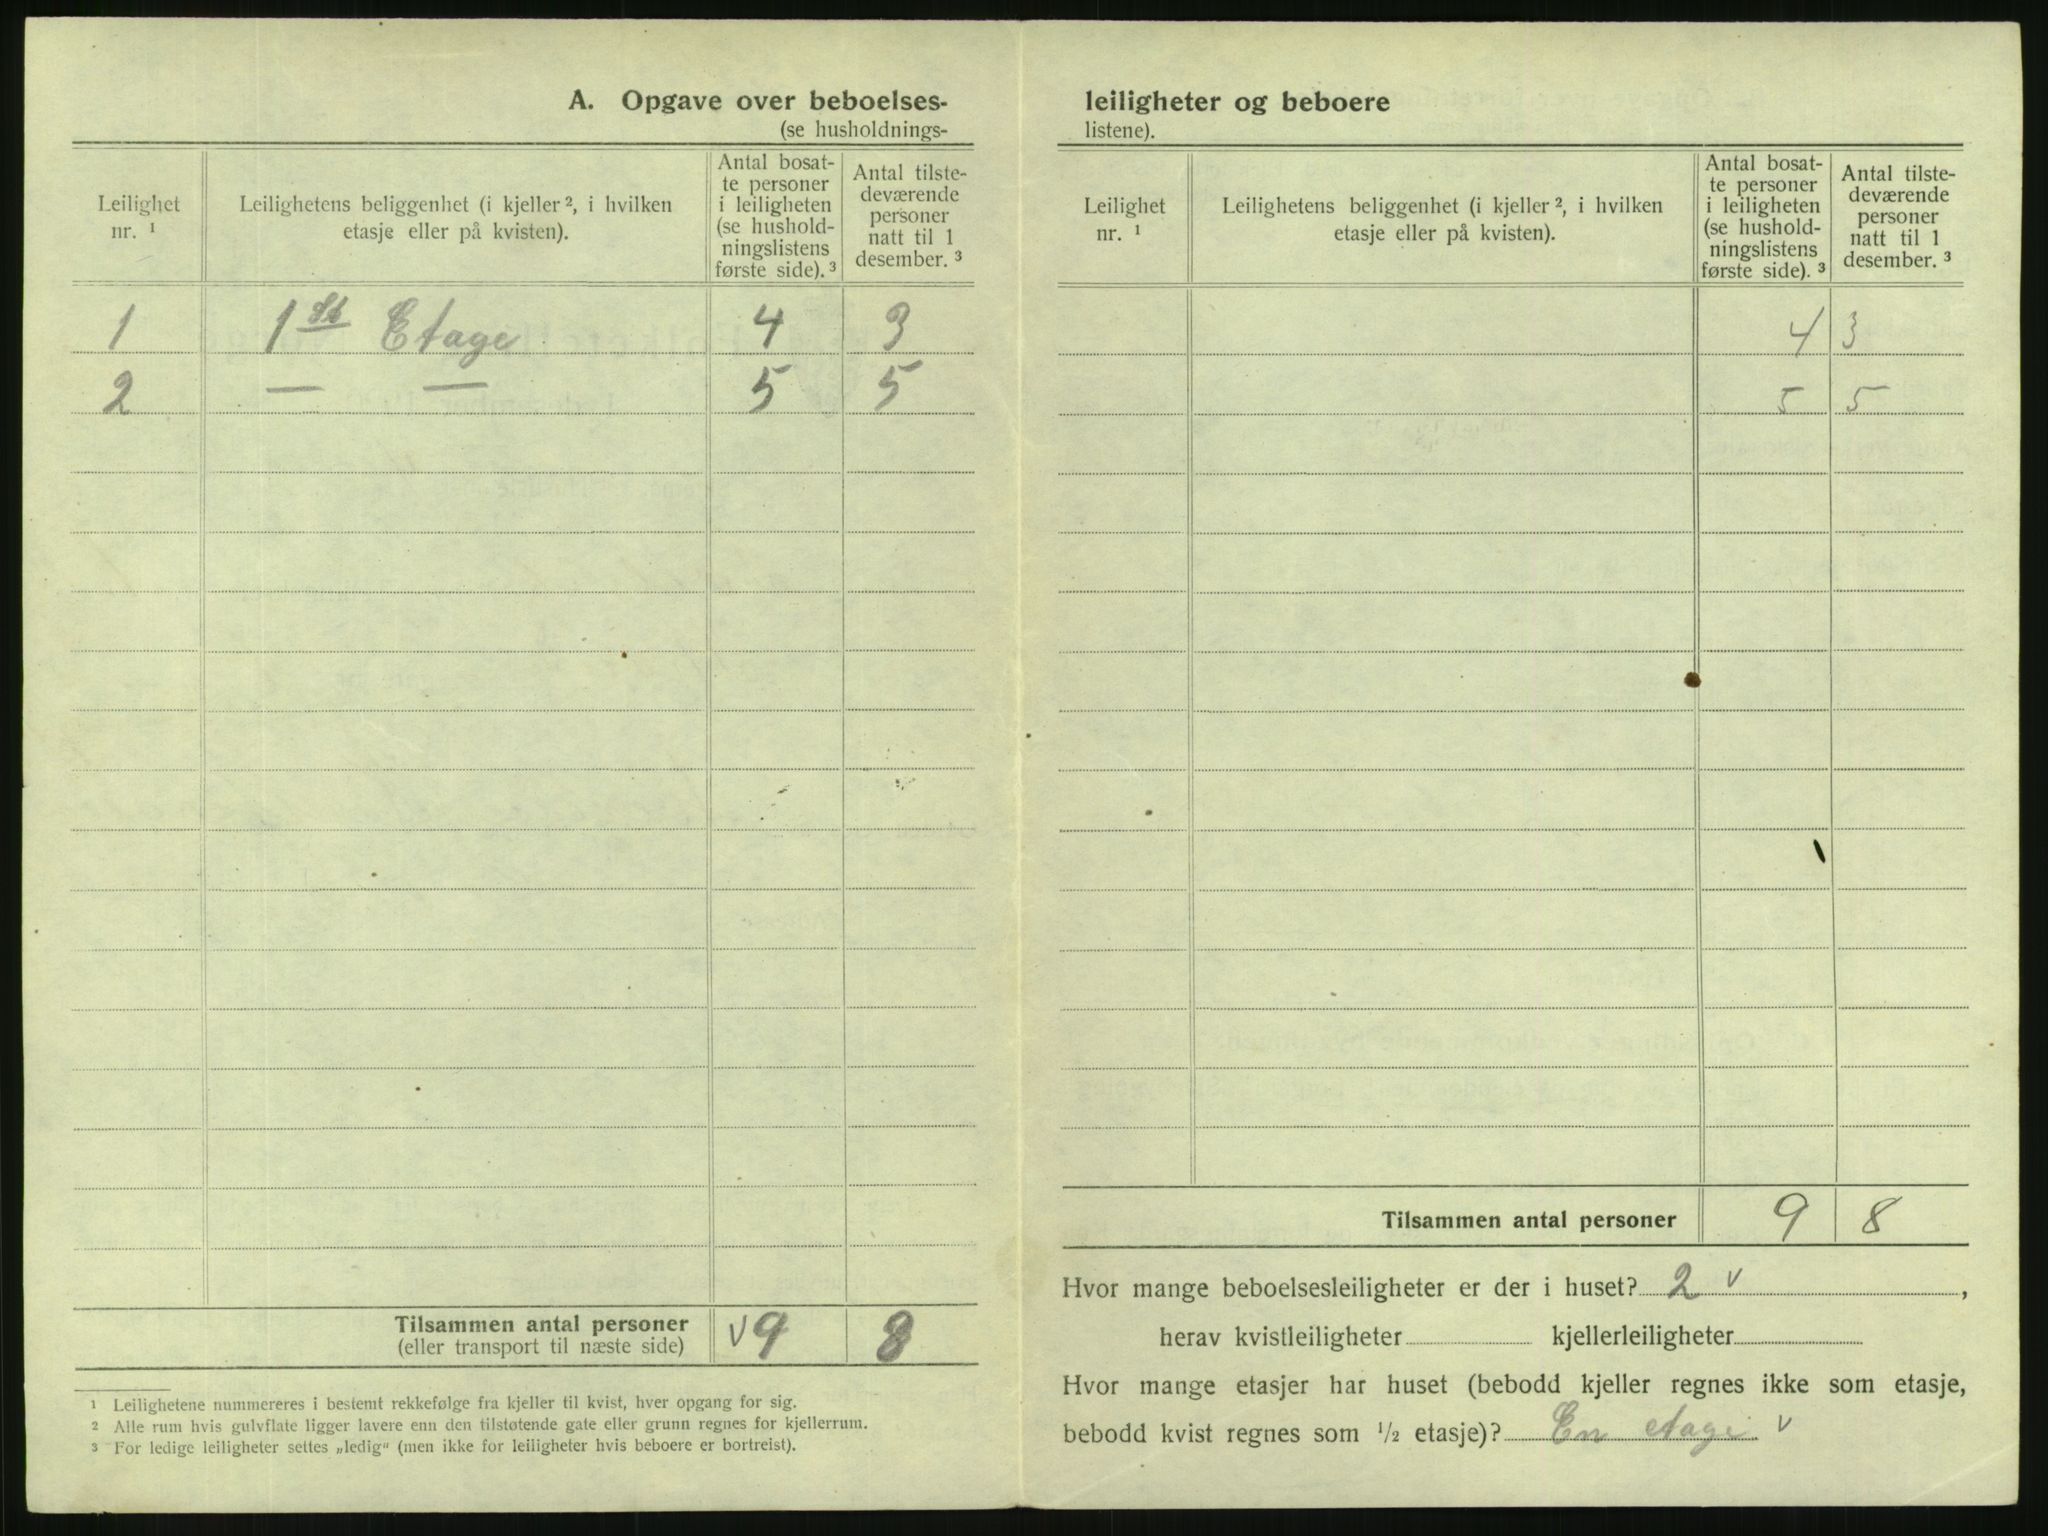 A. Opgave over beboelses-
(se husholdnings-
Leilighet
nr. ¹
Leilighetens beliggenhet (i kjeller ², i hvilken
etasje eller på kvisten).
Antal bosat-
te personer
i leiligheten
(se hushold-
ningslistens
første side). ³
Antal tilste-
deværende
personer
natt til 1
desember. ³
1 1ste Etage 4 3
2 — — 5 5
Tilsammen antal personer v 9 8
(eller transport til næste side)
¹ Leilighetene nummereres i bestemt rekkefølge fra kjeller til kvist, hver opgang for sig.
² Alle rum hvis gulvflate ligger lavere enn den tilstøtende gate eller grunn regnes for kjellerrum.
³ For ledige leiligheter settes „ledig“ (men ikke for leiligheter hvis beboere er bortreist).
leiligheter og beboere
listene).
Leilighet
nr. ¹
Leilighetens beliggenhet (i kjeller ², i hvilken
etasje eller på kvisten).
Antal bosat-
te personer
i leiligheten
(se hushold-
ningslistens
første side). ³
Antal tilste-
deværende
personer
natt til 1
desember. ³
4 3
5 5
Tilsammen antal personer 9 8
Hvor mange beboelsesleiligheter er der i huset? 2 v ,
herav kvistleiligheter kjellerleiligheter
Hvor mange etasjer har huset (bebodd kjeller regnes ikke som etasje,
bebodd kvist regnes som ½ etasje)? En etage v